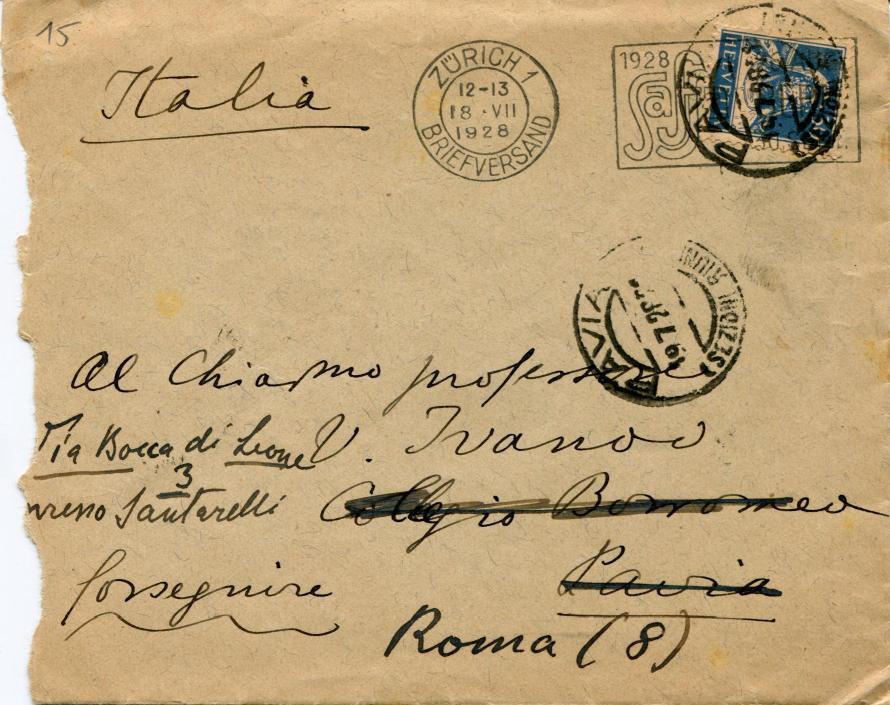 15
Italia
ZÜRICH 1
12-13
18·VII
1928
BRIEFVERSAND
1928
SAFFA
HELVETIA
PAVIA
PAVIA
19·7·28
(SEZIONI RIUNI
Al Chiarmo professore
V. Ivanov
Via Bocca di Leone
3
presso Santarelli
Collegio Borromeo
Pavia
Proseguire
Roma (8)